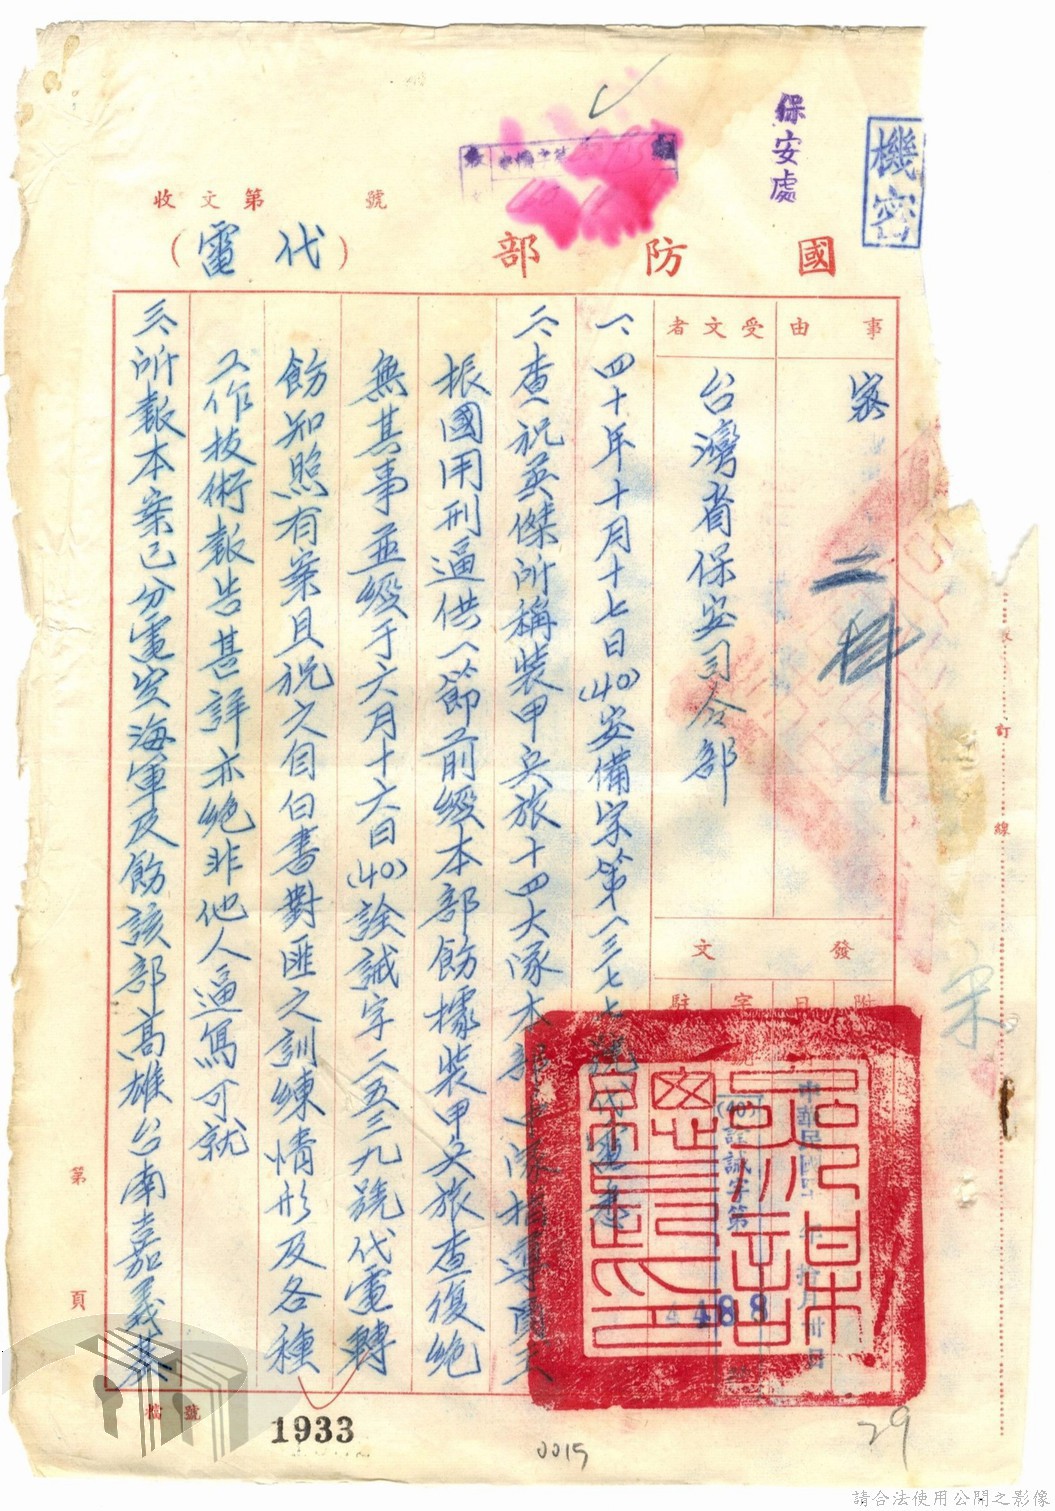 機密
保安處
國防部
（代電）
收文第　　　號
事由
密
二科
受文者
台灣省保安司令部
發文
附
日
字
駐
中華民國四　年拾月卅日
(40)詮誠字第
4488
一、四十年十月十七日(40)安備字第一三七七號代電悉
二、查「祝英傑所稱裝甲兵旅十四大隊本部中隊指導員王
振國用刑逼供」一節前經本部飭據裝甲兵旅查復絕
無其事並經于六月十六日(40)詮誠字二五三九號代電轉
飭知照有案且祝之自白書對匪之訓練情形及各種
工作技術報告甚詳亦絕非他人逼寫可就
三、所報本案已分電空海軍及飭該部高雄台南嘉義基
訂
線
第
頁
檔號
1933
0015
29
請合法使用公開之影像